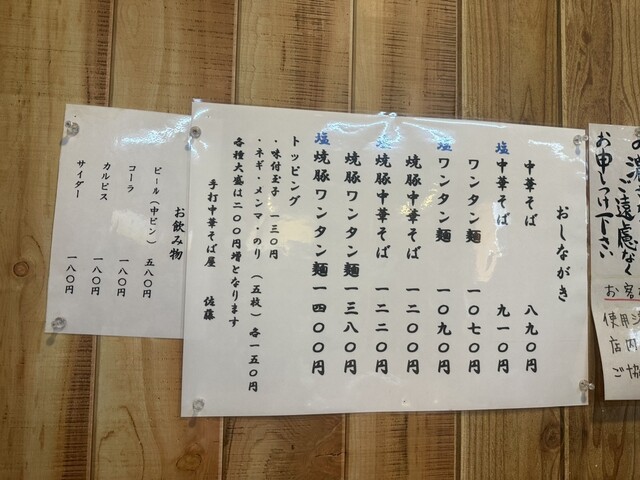 お申しつけ下さい
ご遠慮なく
おしながき
中華そば 八九〇円
塩中華そば 九一〇円
ワンタン麺 一〇七〇円
塩ワンタン麺 一〇九〇円
焼豚中華そば 一二〇〇円
塩焼豚中華そば 一二二〇円
焼豚ワンタン麺 一三八〇円
塩焼豚ワンタン麺 一四〇〇円
トッピング
・味付玉子 一三〇円
・ネギ・メンマ・のり(五枚)各一五〇円
各種大盛は二〇〇円増となります
手打中華そば屋 佐藤
お飲み物
ビール(中ビン) 五八〇円
コーラ 一八〇円
カルピス 一八〇円
サイダー 一八〇円